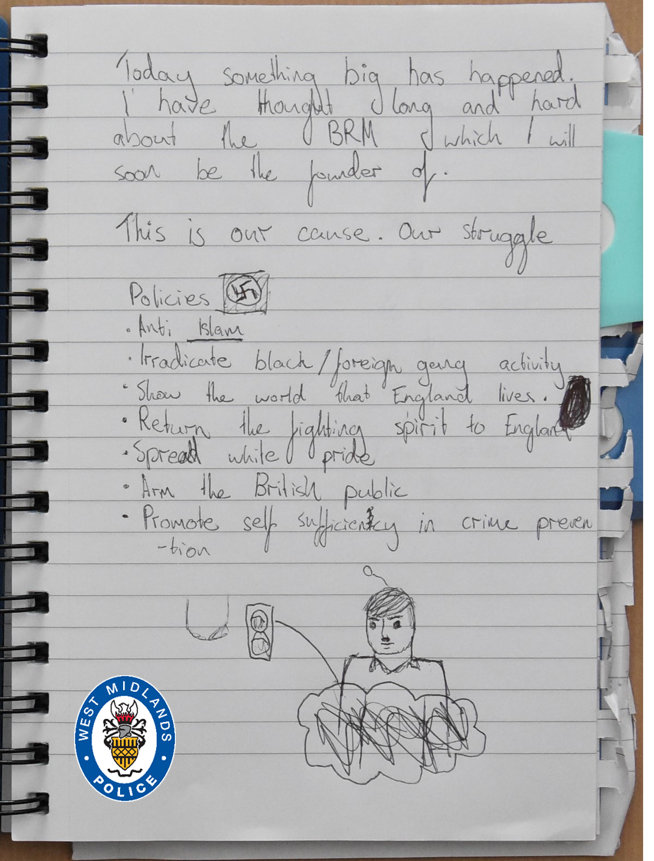 Today something big has happened.
I have thought long and hard
about the BRM which I will
soon be the founder of.
This is our cause. Our struggle
Policies
· Anti Islam
· Irradicate black/foreign gang activity
· Show the world that England lives.
· Return the fighting spirit to England
· Spread white pride
· Arm the British public
· Promote self sufficiency in crime preven
-tion
WEST MIDLANDS
POLICE